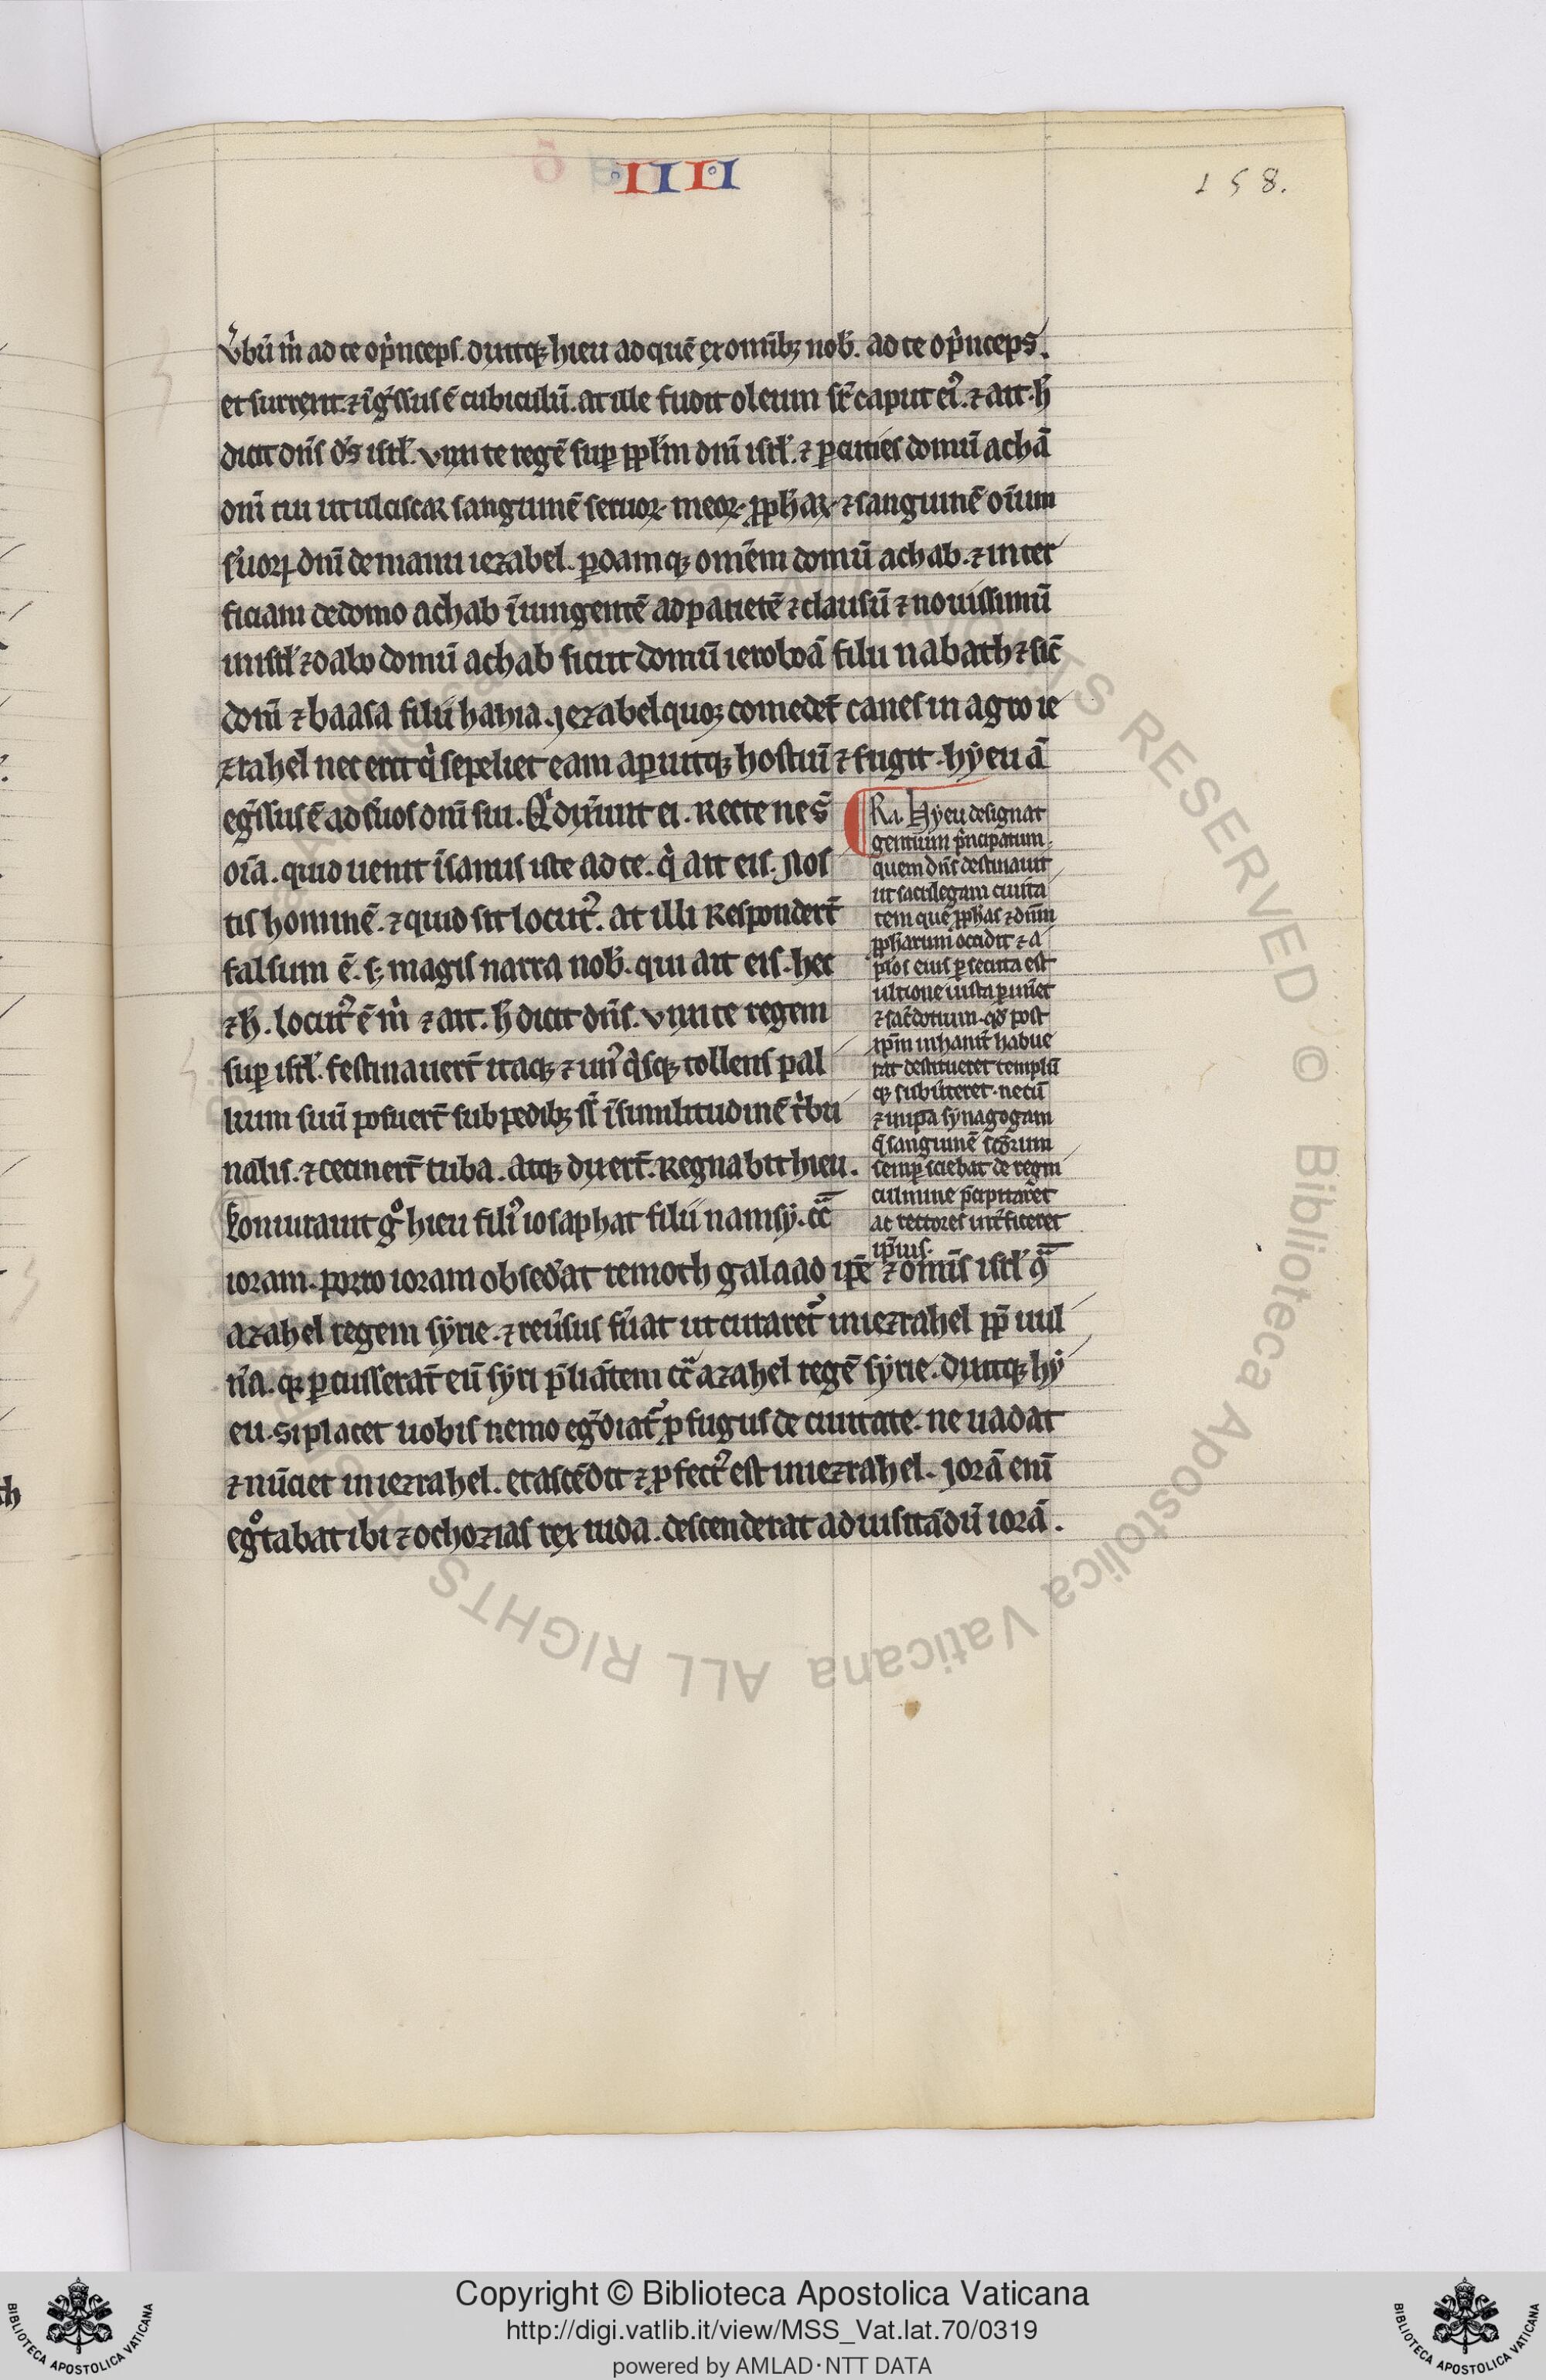 IIII
158.
v̉bũ m̉ ad te op̉nceps. dixitqꝫ hieu ad quẽ ex omĩbꝫ nob̉. ad te o p̉nceps.
et surrexit. ⁊ ĩg̉ssus ẽ cubiculũ. at ille fudit oleum sr̃ caput ei᾽. ⁊ ait. h̃
dicit dñs d̃s isrl̃. vnxi te regẽ suꝑ ppl̃m dñi isrl̃. ⁊ ꝑcuties domũ achã
dñi tui ut ulciscar sanguinẽ seruoꝝ meoꝝ ꝓph̃aꝝ ⁊ sanguinẽ oĩum
s̉uoꝝ dñi de manu iezabel. ꝑdamqꝫ omẽm domũ achab. ⁊ inter
ficiam de domo achab ĩmingentẽ ad parietẽ ⁊ clausũ ⁊ nouissimũ
in isrl̃ ⁊ dabo domũ achab sicut domũ ieroboã filii nabath ⁊ sic̃
domũ ⁊ baasa filii hahia. Jezabel quoqꝫ comedet̃ canes in agro ie
zrahel nec erit q̉ sepeliet eam aꝑuitqꝫ hostiũ ⁊ fugit. hẏeu ã
eg̉ssus ẽ ad s̉uos dñi sui. Q̉ dix̉unt ei. Recte ne s̃
oĩa. quid uenit ĩsanus iste ad te. q̉ ait eis. Nos
tis hominẽ. ⁊ quid sit locut᾽. at illi Respondert̃
falsum ẽ. sꝫ magis narra nob̉. qui ait eis. hec
⁊ h̃. locut᾽ ẽ m̉ ⁊ ait. h̃ dicit dñs. vnxi te regem
suꝑ isrl̃. festinauert̃ itaqꝫ ⁊ un᾽ q̉sqꝫ tollens pal
lium suũ posuert̃ sub pedibꝫ ei᾽ ĩ similitudinẽ t̉bu
nalis. ⁊ cecinert̃ tuba. atqꝫ dixert̃. Regnabit hieu.
Koniurauit g̊ hieu fili᾽ iosaphat filii namsẏ. cc̃
ioram. porro ioram obsed̉at remoth galaad ip̃e ⁊ omĩs isrl̃ 9̃
azahel regem sẏrie. ⁊ reủsus fủat ut curaret᾽ in iezrahel ꝓp̃ uul
n̉a. qꝫ ꝑcusserat̃ eũ sẏri p̃liãtem cc̃ azahel regẽ sẏrie. dixitqꝫ hẏ
eu. si placet uobis nemo eg̉diat᾽ ꝓfugus de ciuitate. ne uadat
⁊ nũciet in iezrahel. et ascẽdit ⁊ ꝓfect᾽ est in iezrahel. Jorã enĩ
eg̊tabat ibi ⁊ ochozias rex iuda. descenderat ad uisitãdũ iorã.
Ra. Hẏeu designat
gentium p̉ncipatum.
quem dñs destinauit
ut sacrilegam ciuita
tem que ꝓph̃as ⁊ dñm
ꝓph̃arum occidit ⁊ a
p̃los eius ꝑsecuta est
ultione iusta ꝑimẽt
⁊ sac̃dotium. qd̃ post
ip̃m inhanit̃ habue
rat destitueret templũ
qꝫ subủteret. nec ñ
⁊ impia sẏnagogam
q̉ sanguinẽ scõrum
semꝑ sciebat de regni
culmine p̃cipitaret
ac rectores int̃ficeret
ip̃ius.
Copyright © Biblioteca Apostolica Vaticana
http://digi.vatlib.it/view/MSS_Vat.lat.70/0319
powered by AMLAD·NTT DATA
BIBLIOTECA APOSTOLICA VATICANA
BIBLIOTECA APOSTOLICA VATICANA